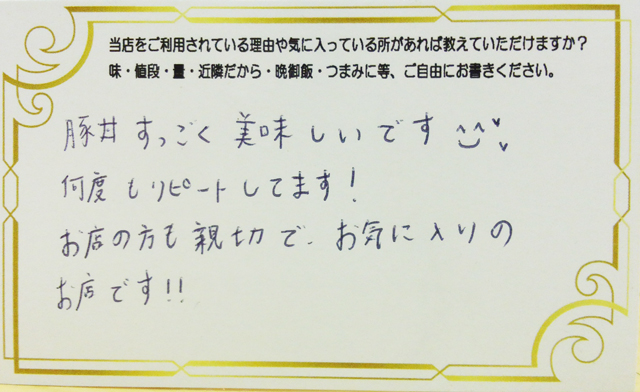 当店をご利用されている理由や気に入っている所があれば教えていただけますか？
味・値段・量・近隣だから・晩御飯・つまみに等、ご自由にお書きください。
豚丼 すっごく 美味しいです ^^
何度もリピートしてます！
お店の方も親切で、お気に入りの
お店です!!